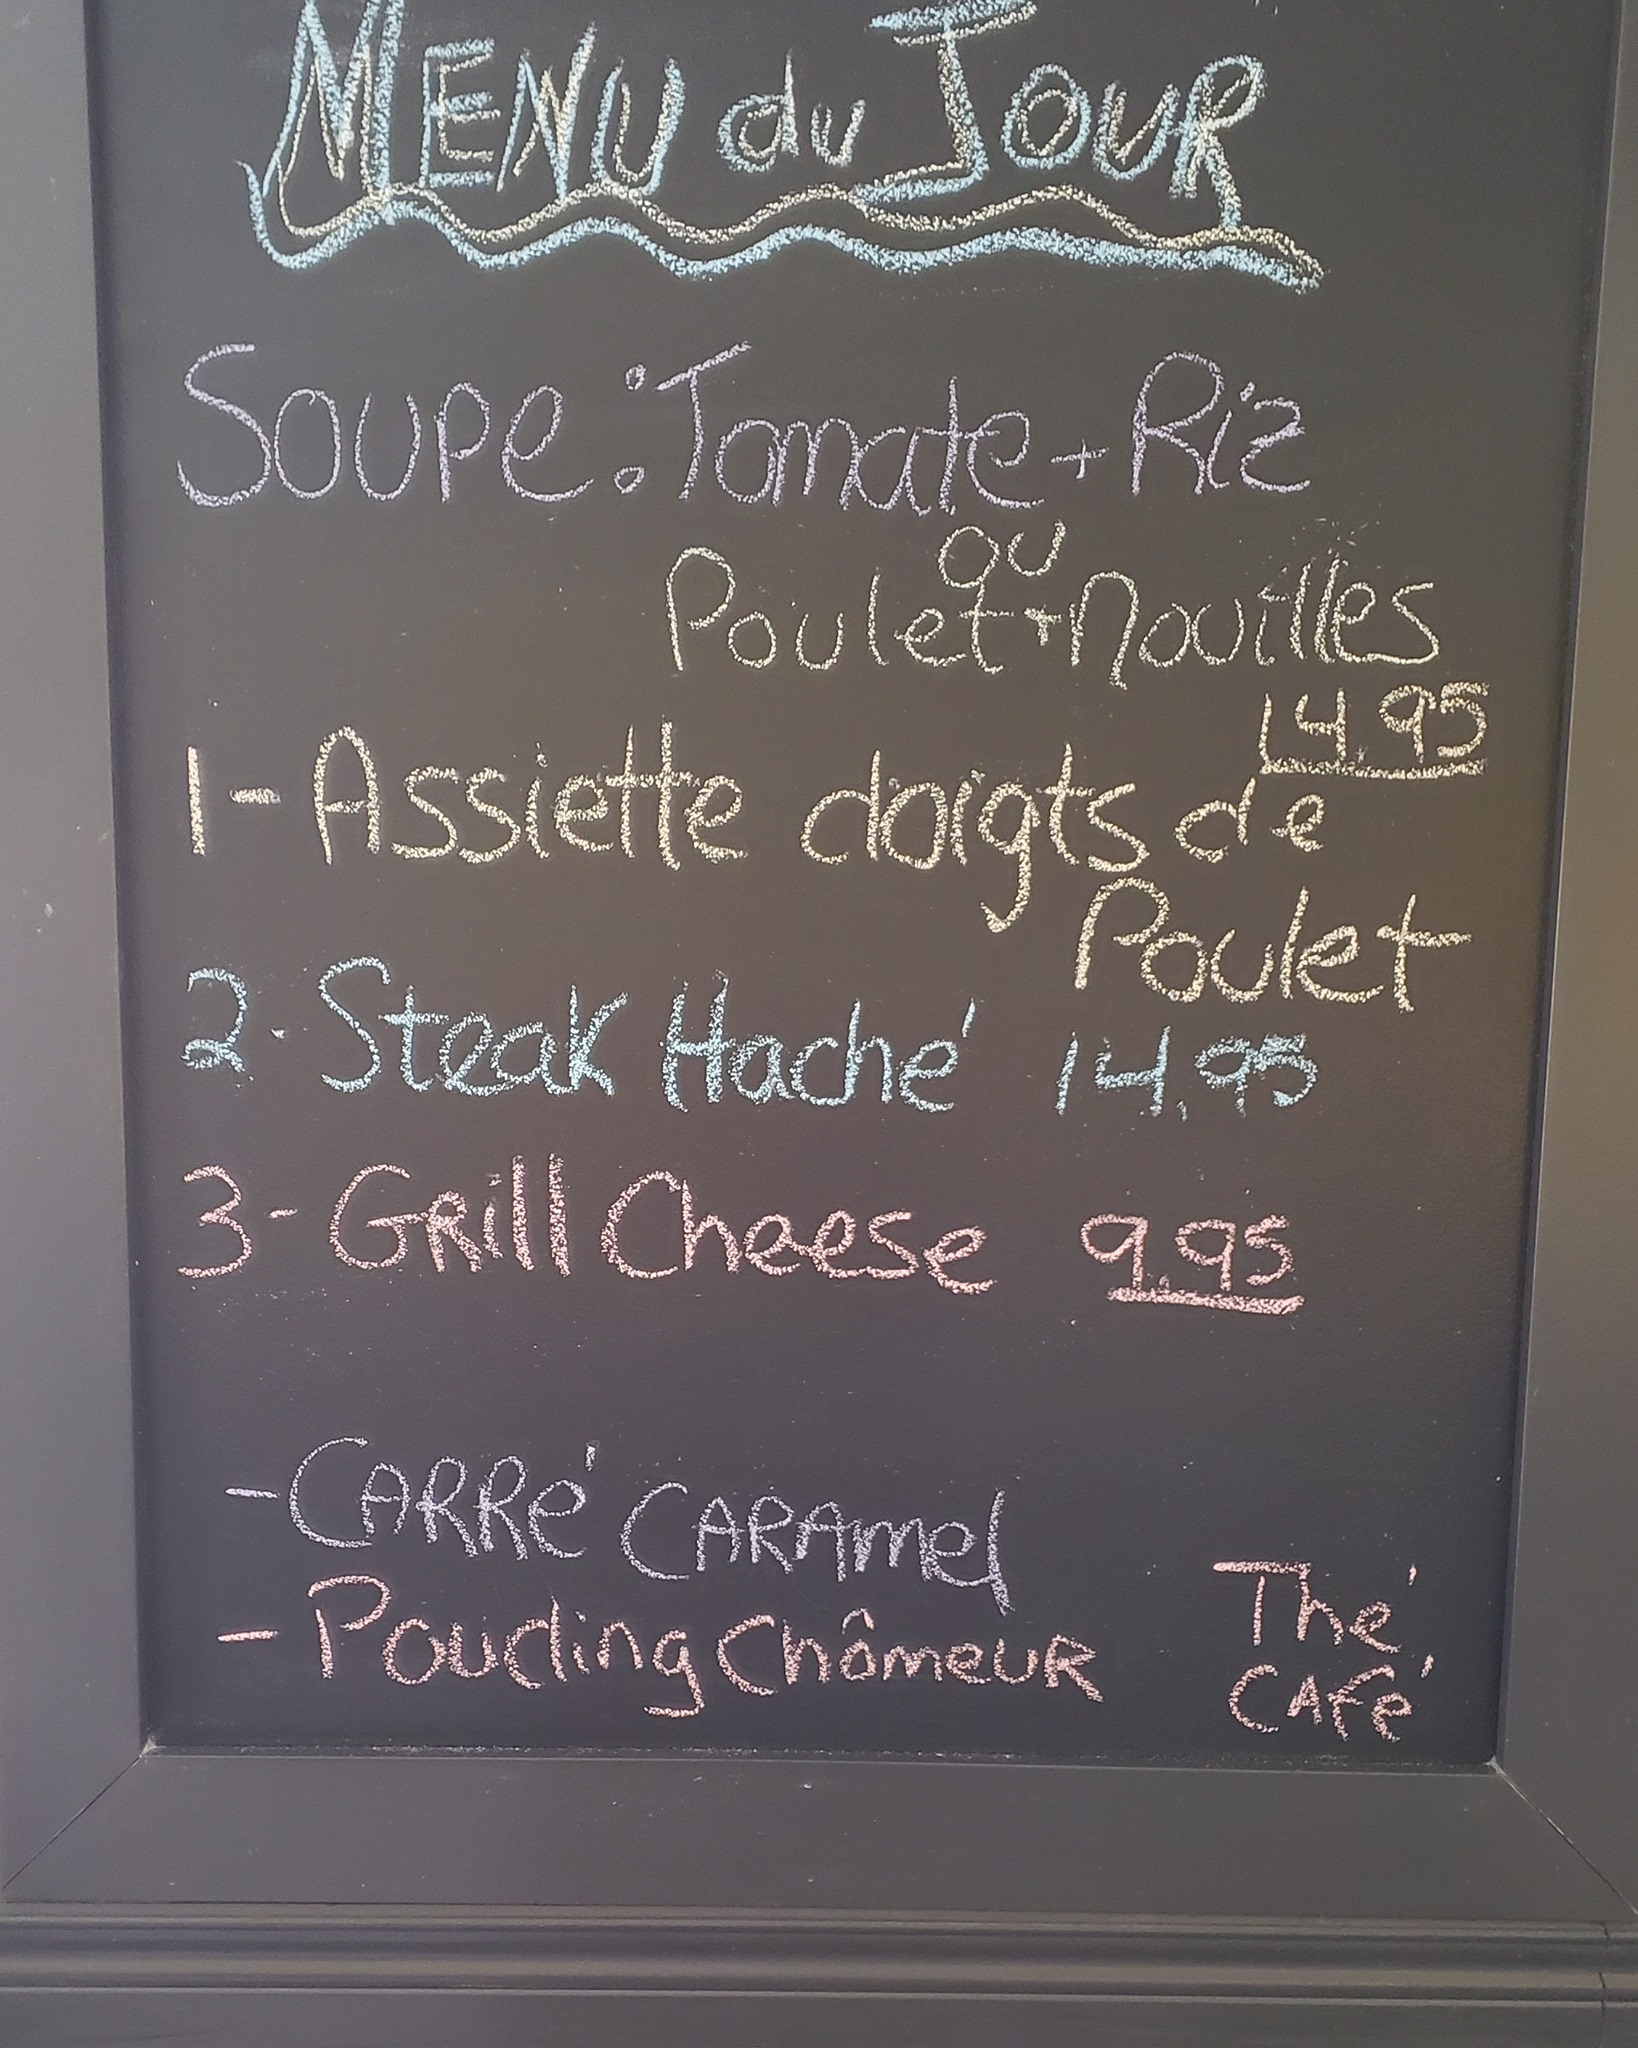 MENU du JOUR
Soupe : Tomate + Riz
ou
Poulet + nouilles
14.95
1- Assiette doigts de
Poulet
2. Steak Haché 14.95
3- Grill Cheese 9.95
- CARRé CARAmel
- Pouding ChômeuR
Thé
CAFé